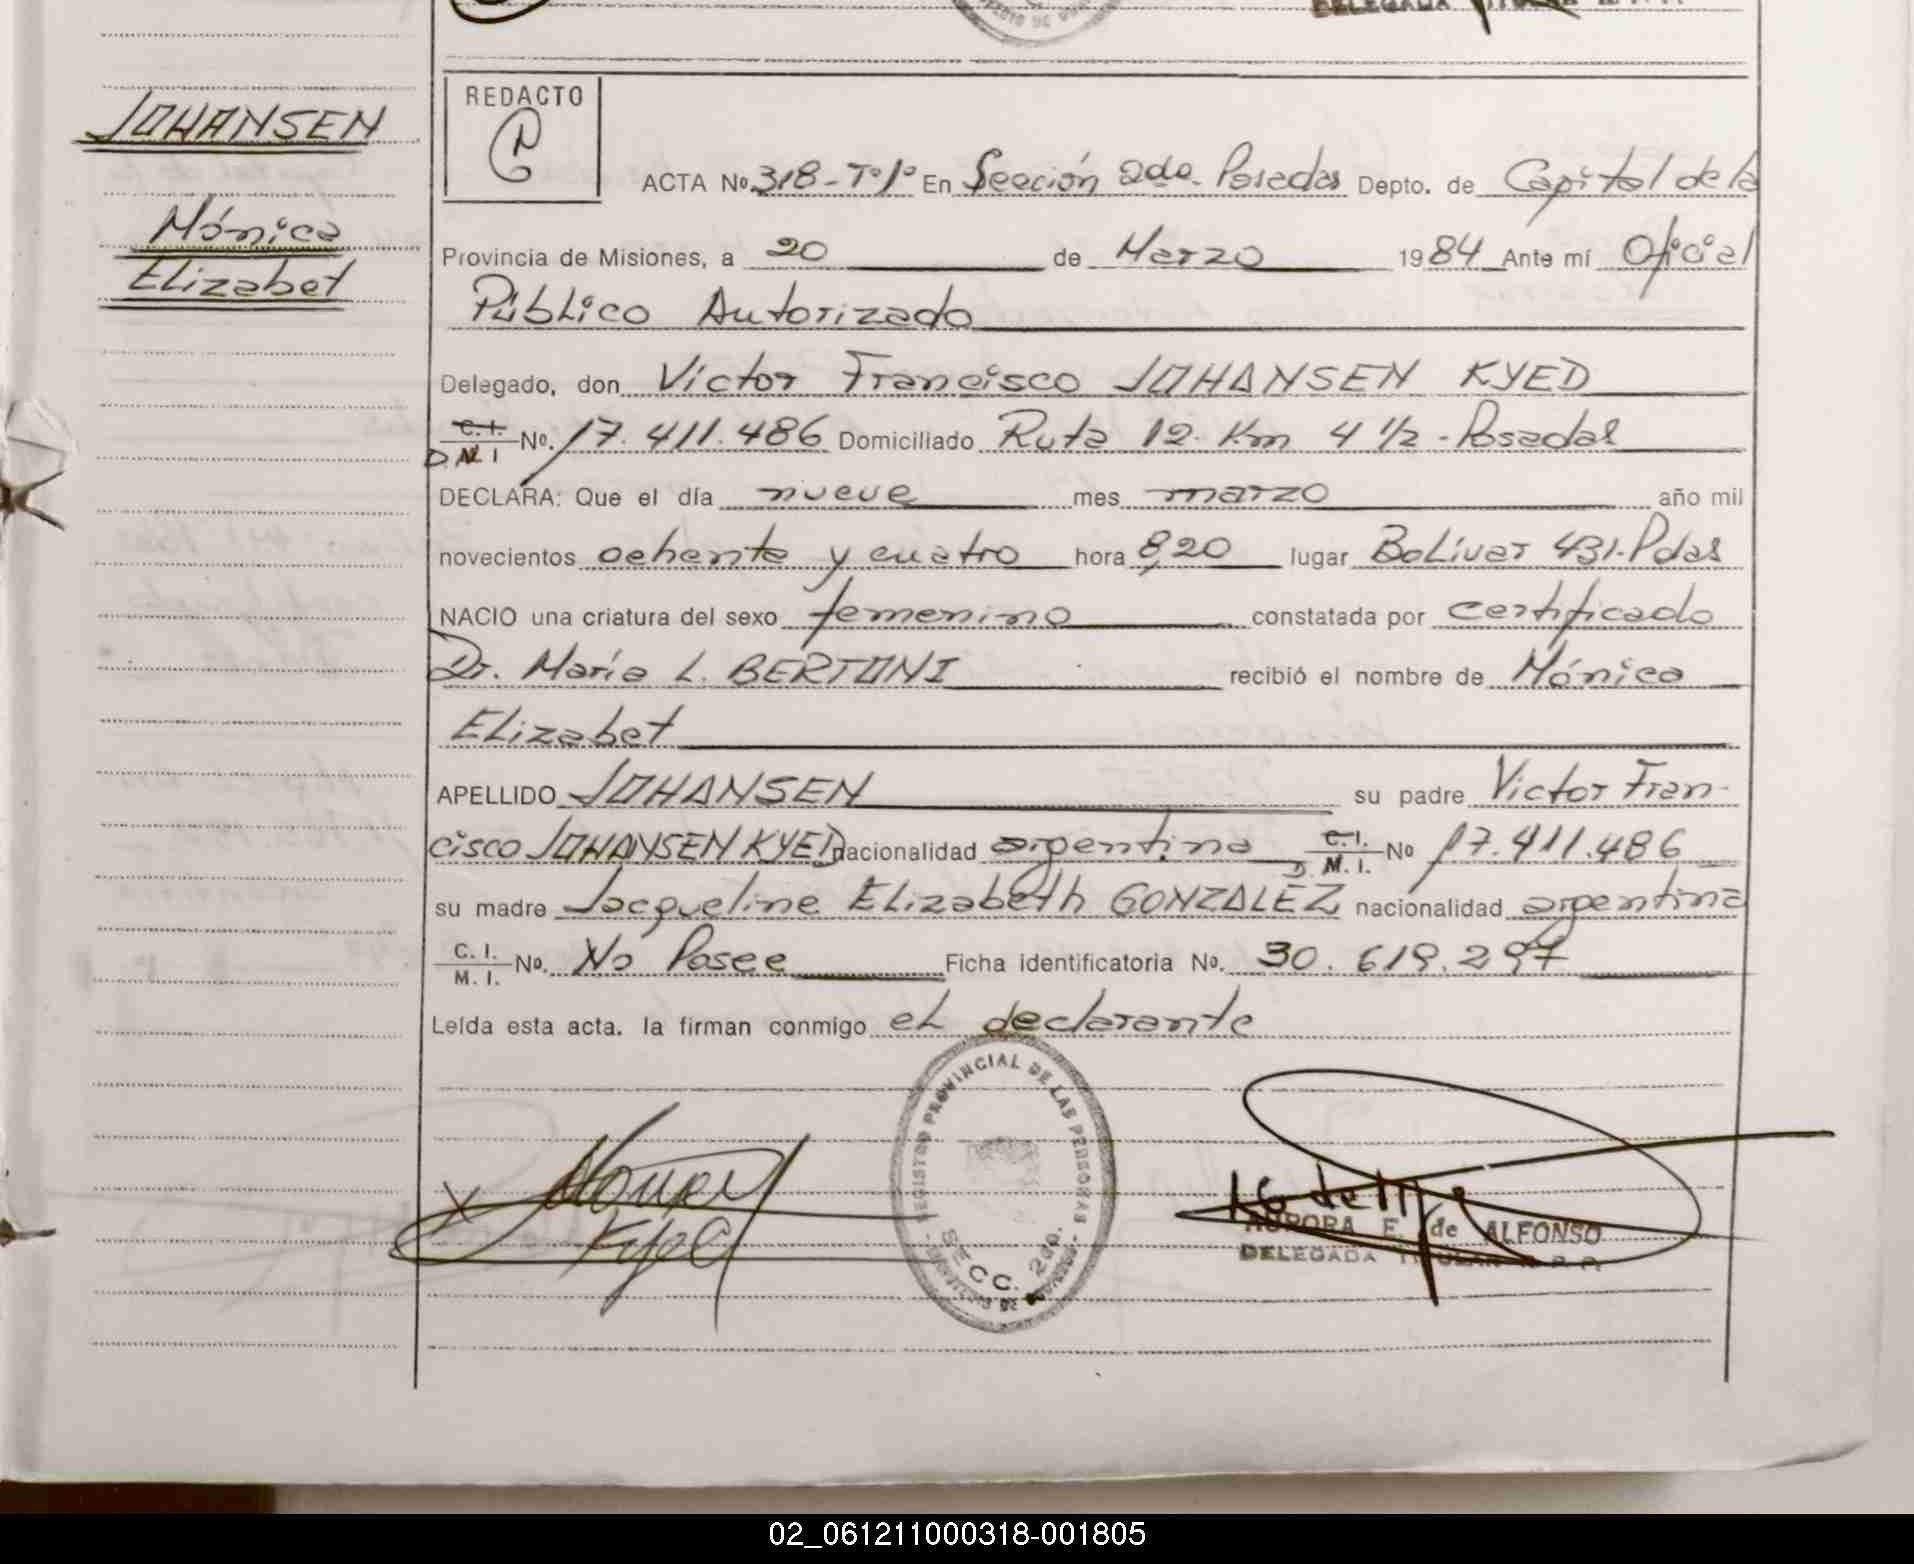 JOHANSEN
Mónica
Elizabet
REDACTO
ACTA No. 318-Tº1º En Sección 2da. Posadas Depto. de Capital de la
Provincia de Misiones, a 20 de Marzo 1984 Ante mí Oficial
Público Autorizado
Delegado, don Víctor Francisco JOHANSEN KYED
C. I.
D.M I No. 17.411.486 Domiciliado Ruta 12 Km 4 1/2 - Posadas
DECLARA: Que el día nueve mes marzo año mil
novecientos ochenta y cuatro hora 8,20 lugar Bolívar 431-Pdas
NACIO una criatura del sexo femenino constatada por certificado
Dr. María L. BERTONI recibió el nombre de Mónica
Elizabet
APELLIDO JOHANSEN su padre Víctor Fran-
cisco JOHANSEN KYED nacionalidad argentina C.I.
D. M. I. No 17.411.486
su madre Jacqueline Elizabeth GONZALEZ nacionalidad argentina
C. I.
M. I. No. No Posee Ficha identificatoria No. 30.619.297
Leída esta acta. la firman conmigo el declarante
REGISTRO PROVINCIAL DE LAS PERSONAS
SECC. 2da.
AURORA E. de ALFONSO
DELEGADA TITULAR R. P. P.
02_061211000318-001805